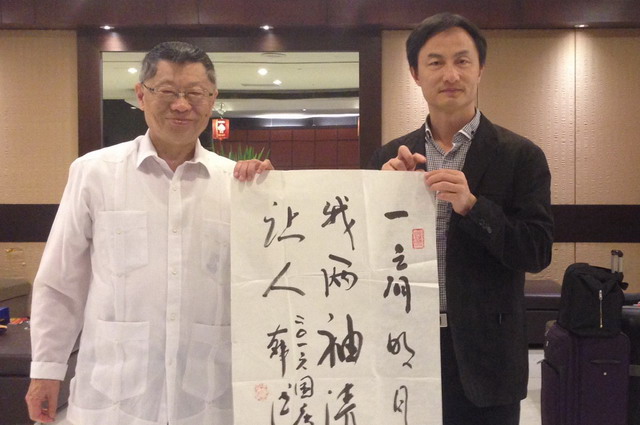 一肩明月
我两袖清
让人
二〇一六国庆
韩